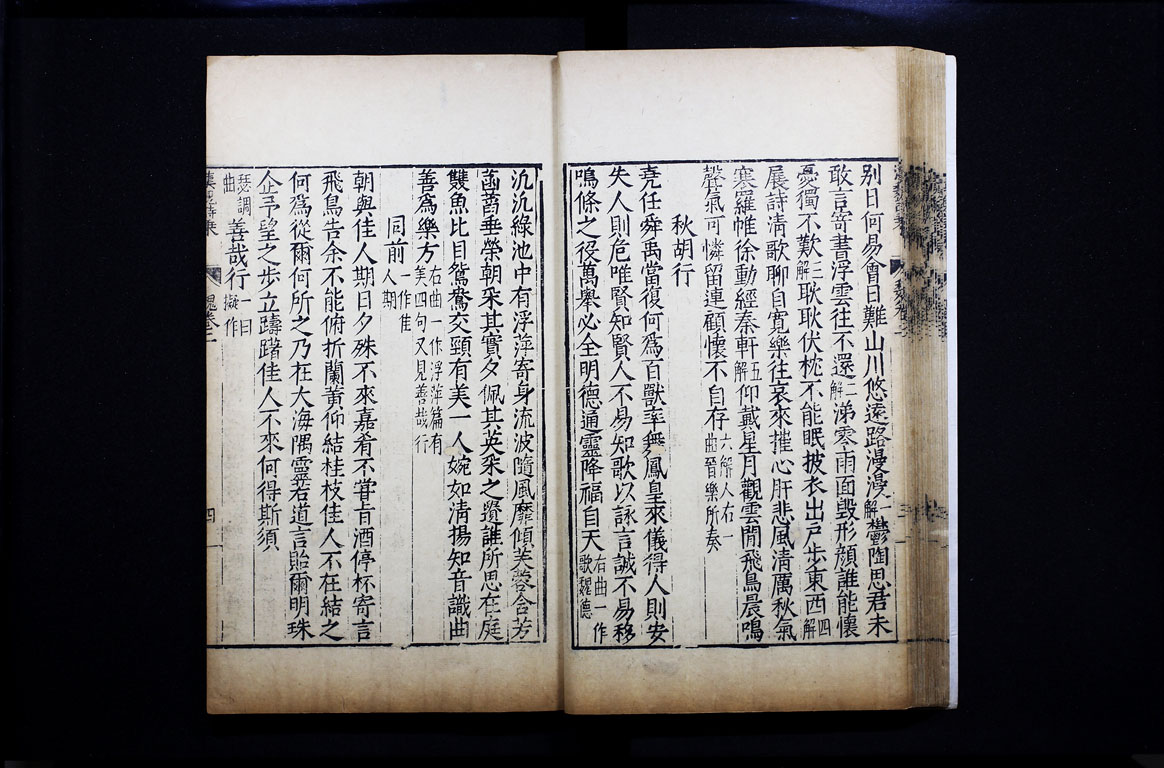 別日何易會日難山川悠遠路漫漫一解鬱陶思君未
敢言寄書浮雲往不還二解涕零雨面毀形顏誰能懷
憂獨不歎三解耿耿伏枕不能眠披衣出戶步東西四解
展詩清歌聊自寬樂往哀來摧心肝悲風清厲秋氣
寒羅帷徐動經秦軒五解仰戴星月觀雲間飛鳥晨鳴
聲氣可憐留連顧懷不自存六解右一曲晉樂所奏
秋胡行
堯任舜禹當復何為百獸率舞鳳皇來儀得人則安
失人則危唯賢知賢人不易知歌以詠言誠不易移
鳴條之役萬舉必全明德通靈降福自天右曲一作歌魏德
汎汎綠池中有浮萍寄身流波隨風靡傾芙蓉含芳
菡萏垂榮朝采其實夕佩其英采之遺誰所思在庭
雙魚比目鴛鴦交頸有美一人婉如清揚知音識曲
善為樂方右曲一作浮萍篇有美四句又見善哉行
同前一作佳人期
朝與佳人期日夕殊不來嘉肴不嘗旨酒停杯寄言
飛鳥告余不能俯折蘭英仰結桂枝佳人不在結之
何為從爾何所之乃在大海隅靈若道言貽爾明珠
企予望之步立躊躇佳人不來何得斯須
瑟調曲善哉行一曰擬作
魏卷二
四